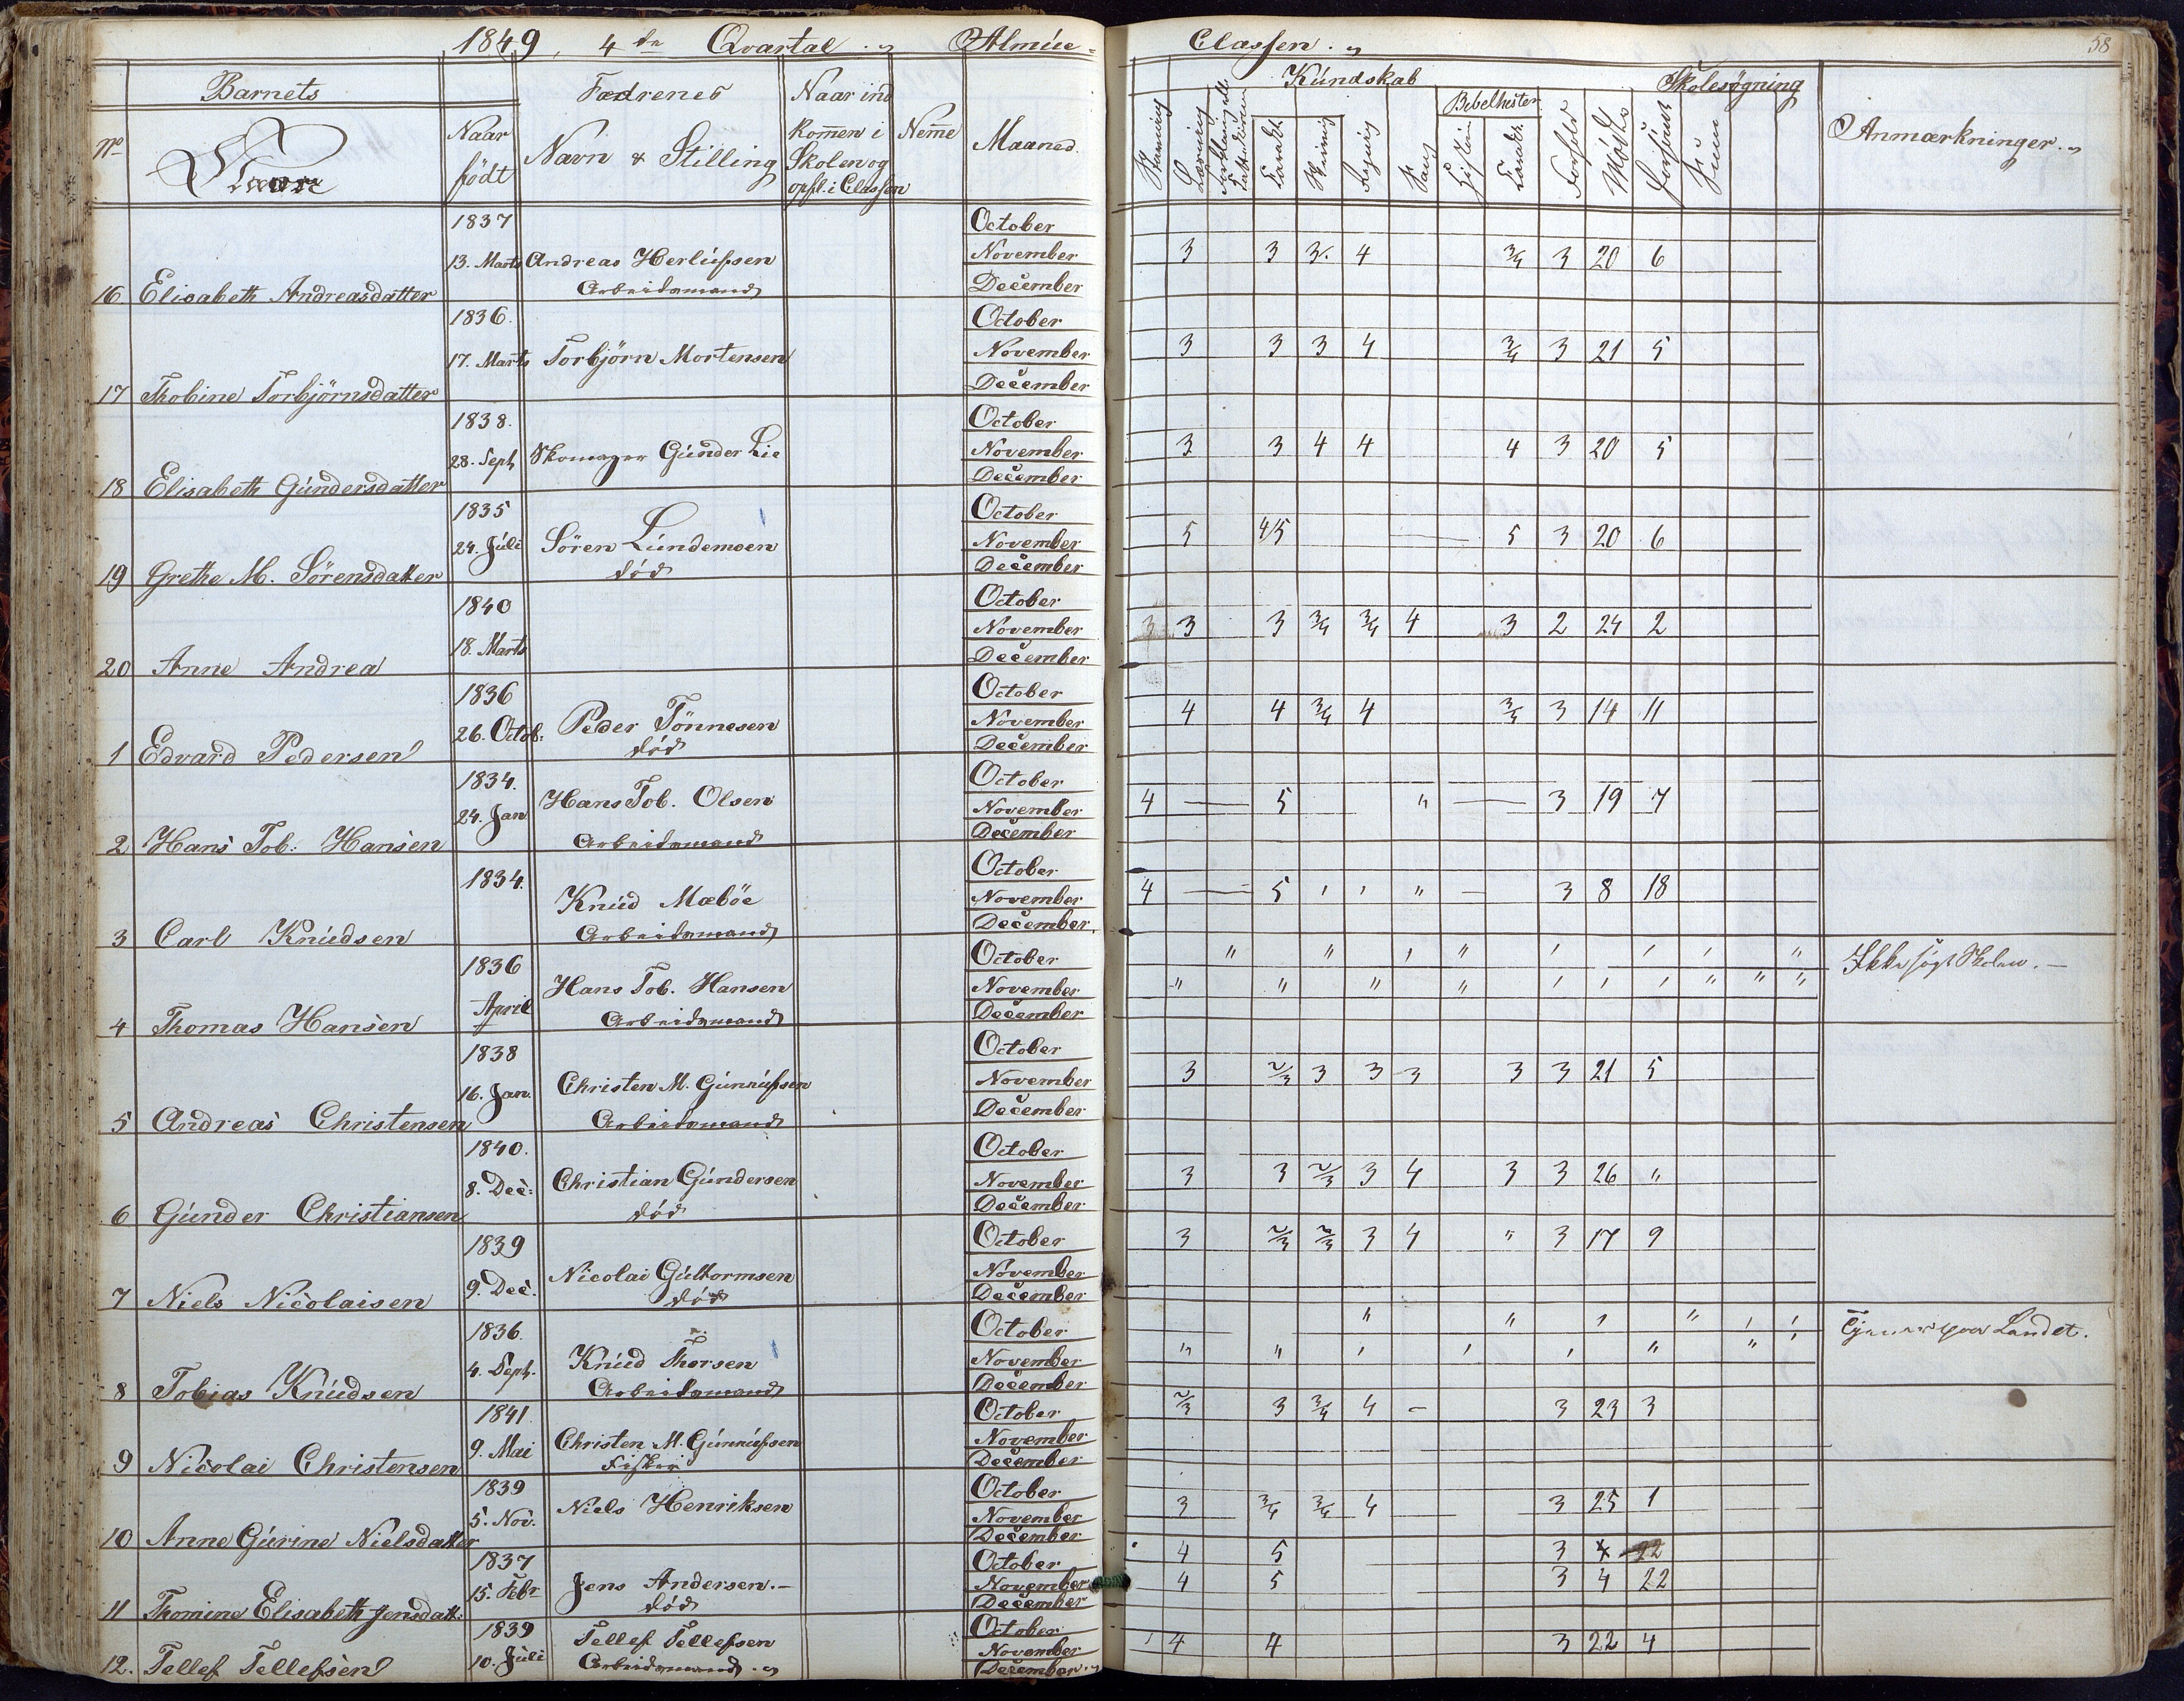 1849, 4de Qvartal. Almue= Classen.
58
Barnets Fædrenes Naar ind Kundskab Skolesøgning
No Navn Naar født Navn & Stilling kommen i Skolen og opfl. i Classen Nemme Maaned. Stavning Læsning Tavlet. Skrivning Regning Sang Bibelhistor. Tavlet. Forhold Mødte Forsømt Anmærkninger.
1837 October
13. Marts Andreas Herlufsen November 3 3 3. 4 3/4 3 20 6
16 Elisabeth Andreasdatter Arbeidsmand December
1836. October
17. Marts Torbjörn Mortensen November 3 3 3 4 3/4 3 21 5
17 Thobine Torbjörnsdatter December
1838. October
28. Sept Skomager Gunder Lie November 3 3 4 4 4 3 20 5
18 Elisabeth Gundersdatter December
1835 October
24. Juli Sören Lundemoen November 5 4/5 5 3 20 6
19 Grethe M. Sörensdatter död December
1840 October
18. Marts November 3 3 3 3/4 3/4 4 3 2 24 2
20 Anne Andrea December
1836 October
26. Octob: Peder Tönnesen November 4 4 3/4 4 3/4 3 14 11
1 Edvard Pedersen död December
1834. October
24. Jan Hans Tob. Olsen November 4 — 5 " — 3 19 7
2 Hans Tob: Hansen Arbeidsmand December
1834. October
Knud Mæböe November 4 — 5 ' ' " — 3 8 18
3 Carl Knudsen Arbeidsmand December
1836 October " " ' " ' ' ' " Ikke søgt Skolen. —
April Hans Tob. Hansen November " " " " ' ' ' " " "
4 Thomas Hansen Arbeidsmand December
1838 October
16. Jan. Christen M. Gunnufsen November 3 2/3 3 3 3 3 3 21 5
5 Andreas Christensen Arbeidsmand December
1840. October
8. Dec: Christian Gundersen November 3 3 2/3 3 4 3 3 26 "
6 Gunder Christiansen död December
1839 October 3 2/3 2/3 3 4 " 3 17 9
9. Dec. Nicolai Guttormsen November
7 Niels Nicolaisen död December
1836. October " " ' " ' ' Tjener paa Landet.
4. Sept. Knud Thorsen November " " ' ' ' " " '
8 Tobias Knudsen Arbeidsmand December
1841. October 2/3 3 3/4 4 - 3 23 3
9. Mai Christen M. Gunnufsen November
9 Nicolai Christensen Fisker December
1839 October
5. Nov. Niels Henriksen November 3 3/4 3/4 4 3 25 1
10 Anne Gurine Nielsdatter December
1837 October 4 5 3 4 22
15. Febr Jens Andersen.— November 4 5 3 4 22
11 Thomine Elisabeth Jensdatt: död December
1839 October
10. Juli Tellef Tellefsen November 4 4 3 22 4
12. Tellef Tellefsen Arbeidsmand December